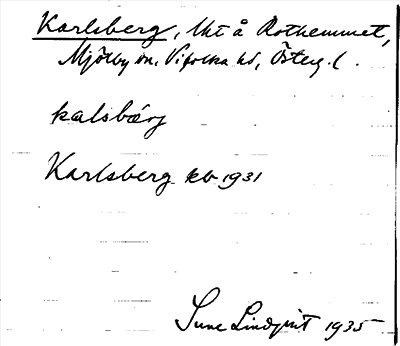 Karlsberg, lht å Rothemmet,
Mjölby sn, Vifolka hd, Österg. l.
kalsbárj
Karlsberg kb 1931
Sune Lindqvist 1935